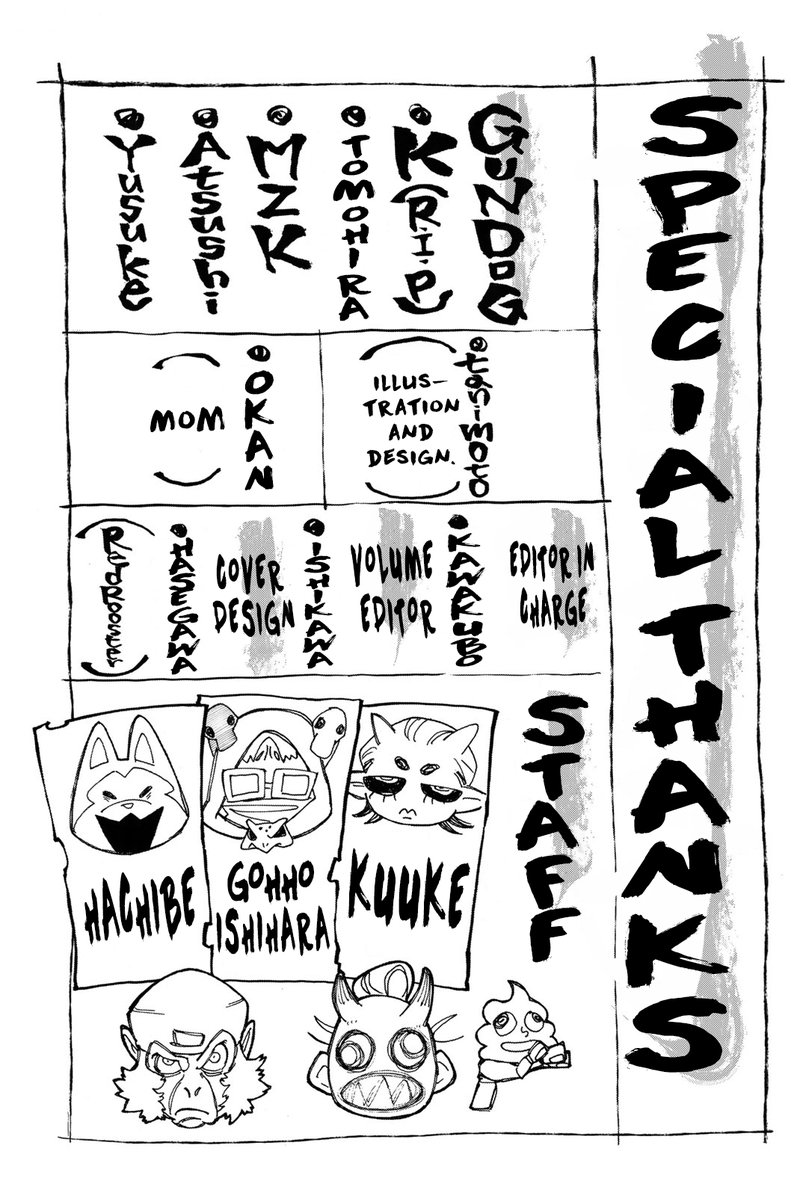 SPECIAL THANKS
GUNDOG
K(R.I.P)
TOMOHIRA
MZK
Atsushi
Yusuke
tanimoto
(ILLUS-
TRATION
AND
DESIGN.)
OKAN
(MOM)
EDITOR IN
CHARGE
KAWAKUBO
VOLUME
EDITOR
ISHIKAWA
COVER
DESIGN
HASEGAWA
STAFF
KUUKE
GOHHO
ISHIHARA
HACHIBE